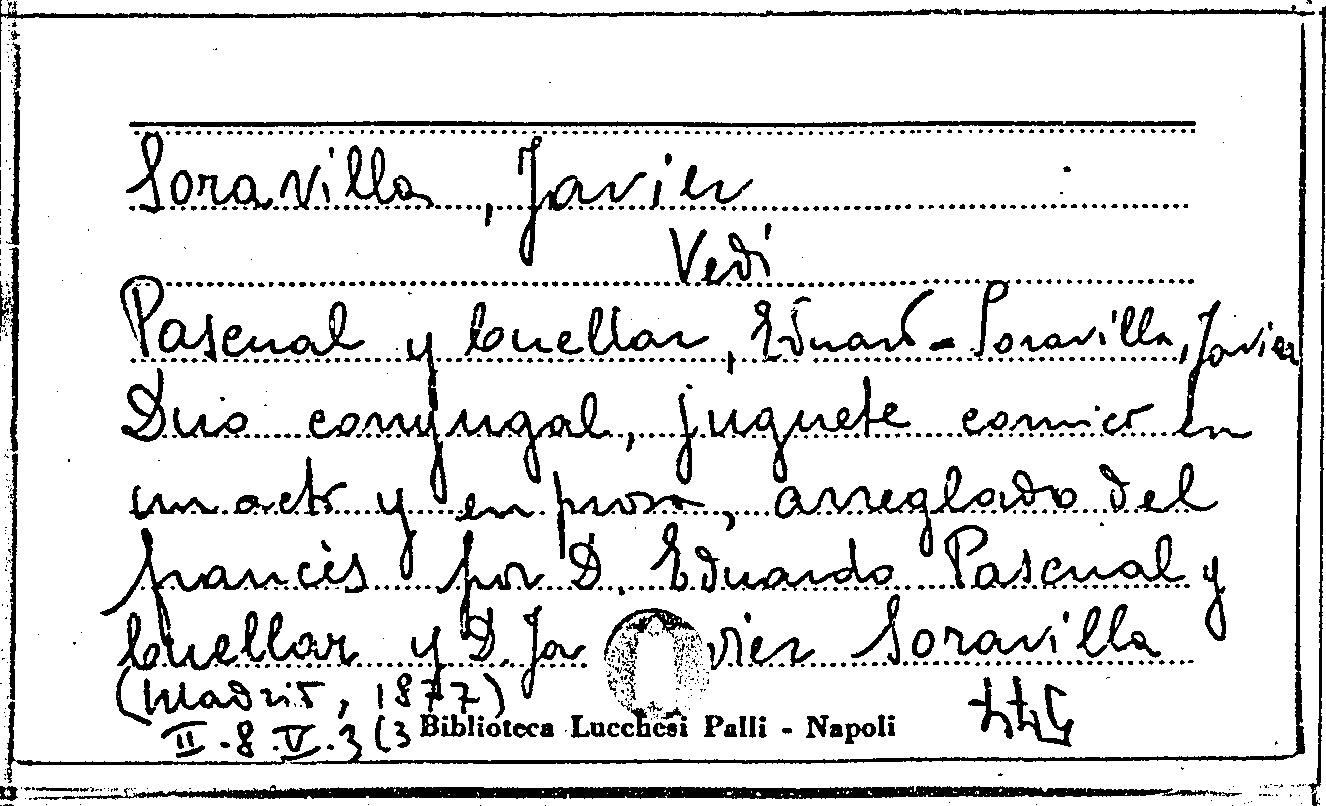 Soravilla, Javier
Vedi
Pascual y Cuellar, Eduardo - Soravilla, Javier
Duo conyugal, juguete comico en
un acto y en prosa, arreglado del
francès por D. Eduardo Pascual y
Cuellar y D. Ja vier Soravilla
(Madrid, 1877)
II.8.V.3(3 Biblioteca Lucchesi Palli - Napoli